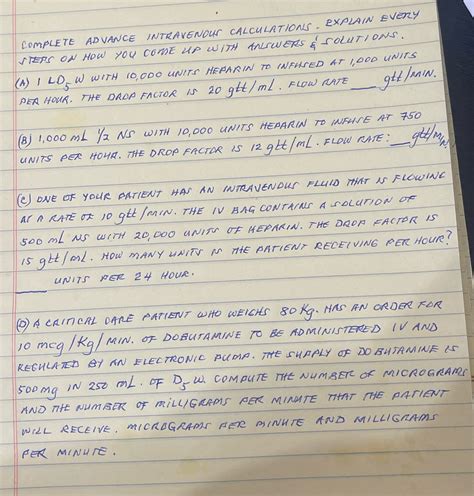 COMPLETE ADVANCE INTRAVENOUS CALCULATIONS. EXPLAIN EVERY
STEPS ON HOW YOU COME UP WITH ANSWERS & SOLUTIONS.
(A) 1 L D5 W WITH 10,000 UNITS HEPARIN TO INFUSED AT 1,000 UNITS
PER HOUR. THE DROP FACTOR IS 20 gtt/mL. FLOW RATE ___ gtt/MIN.
(B) 1,000 mL 1/2 NS WITH 10,000 UNITS HEPARIN TO INFUSE AT 750
UNITS PER HOUR. THE DROP FACTOR IS 12 gtt/mL. FLOW RATE: __ gtt/MIN
(C) ONE OF YOUR PATIENT HAS AN INTRAVENOUS FLUID THAT IS FLOWING
AS A RATE OF 10 gtt/MIN. THE IV BAG CONTAINS A SOLUTION OF
500 mL NS WITH 20,000 UNITS OF HEPARIN. THE DROP FACTOR IS
15 gtt/mL. HOW MANY UNITS IS THE PATIENT RECEIVING PER HOUR?
____ UNITS PER 24 HOUR.
(D) A CRITICAL CARE PATIENT WHO WEIGHS 80 Kg. HAS AN ORDER FOR
10 mcg/Kg/MIN. OF DOBUTAMINE TO BE ADMINISTERED IV AND
REGULATED BY AN ELECTRONIC PUMP. THE SUPPLY OF DOBUTAMINE IS
500 mg IN 250 mL. OF D5 W. COMPUTE THE NUMBER OF MICROGRAMS
AND THE NUMBER OF MILLIGRAMS PER MINUTE THAT THE PATIENT
WILL RECEIVE. MICROGRAMS PER MINUTE AND MILLIGRAMS
PER MINUTE.